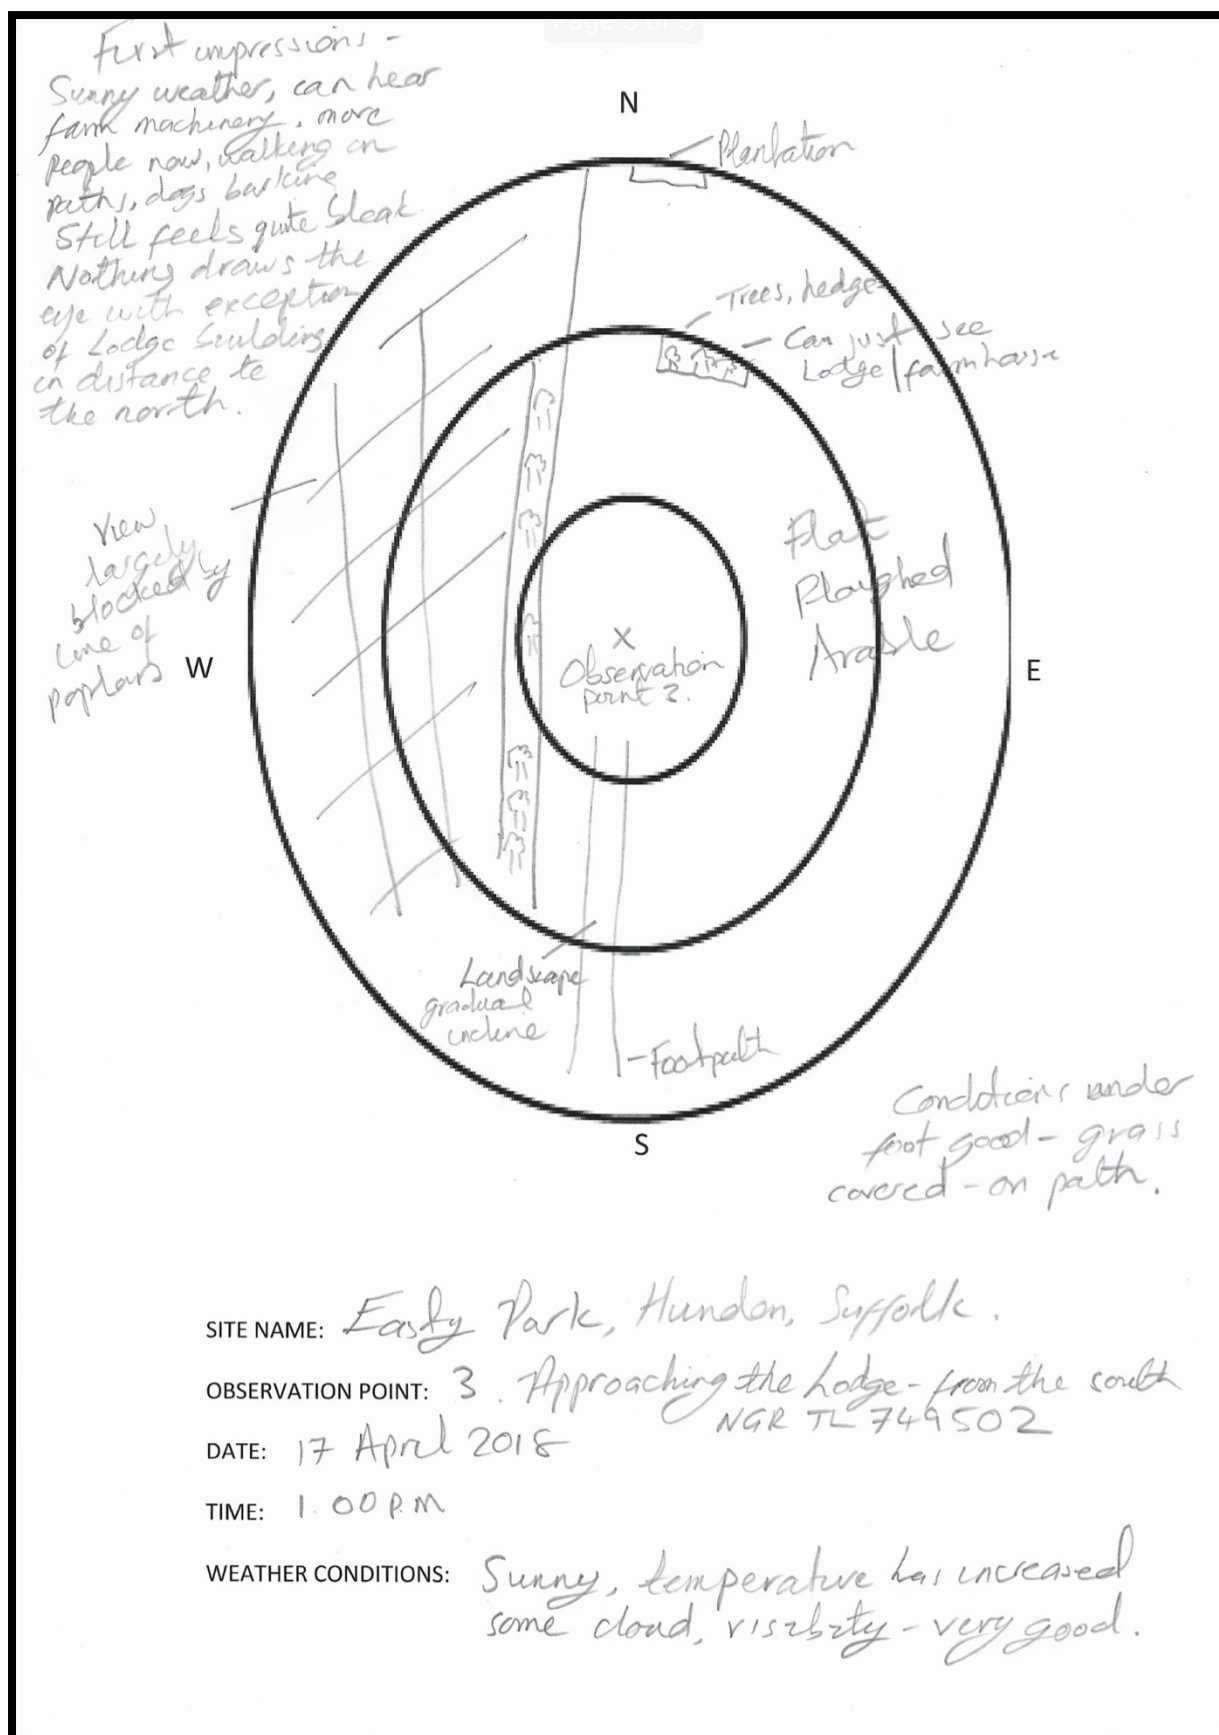 First impressions -
Sunny weather, can hear
farm machinery, more
people now, walking on
paths, dogs barking
Still feels quite bleak.
Nothing draws the
eye with exception
of Lodge building
in distance to
the north.
N
Plantation
Trees, hedge
Can just see
Lodge/farmhouse
View
largely
blocked by
line of
poplars
W
Flat
Ploughed
Arable
E
X
Observation
point 3.
Landscape
gradual
incline
Footpath
S
Conditions under
foot good - grass
covered - on path.
SITE NAME: Easty Park, Hundon, Suffolk.
OBSERVATION POINT: 3. Approaching the Lodge - from the south
NGR TL 749502
DATE: 17 April 2018
TIME: 1.00 P.M
WEATHER CONDITIONS: Sunny, temperature has increased
some cloud, visibity - very good.